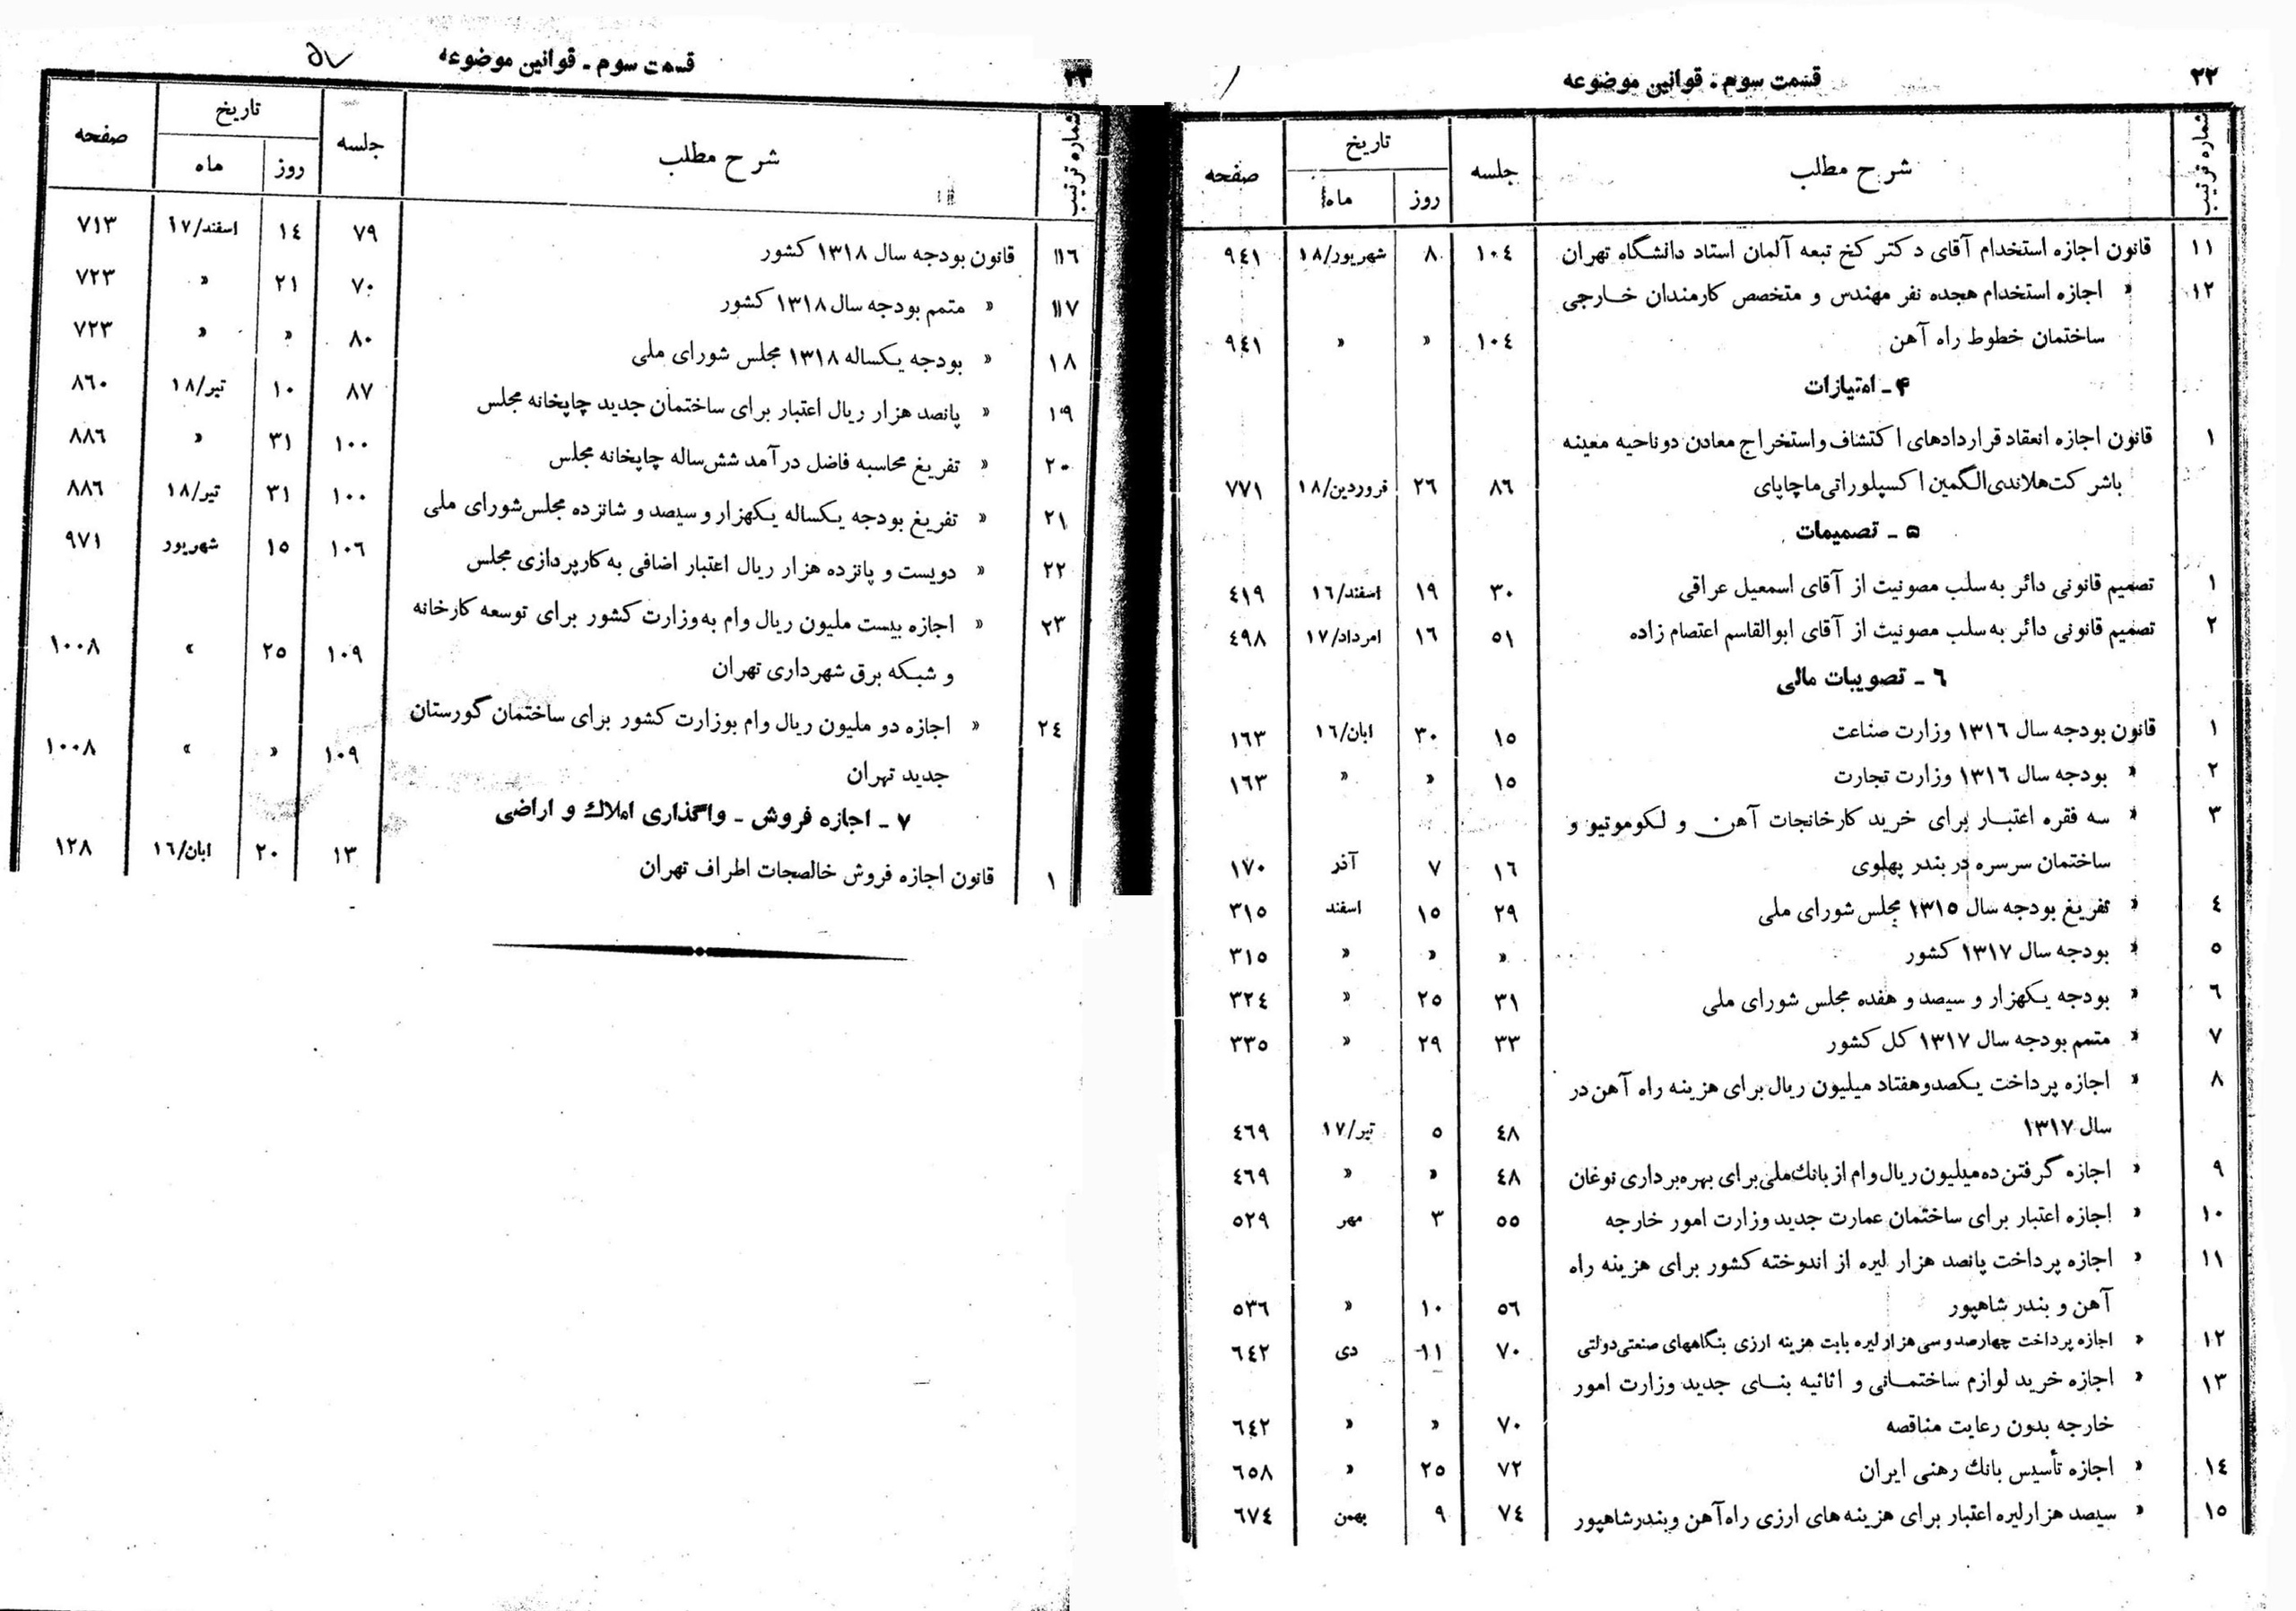 ۲۲
قسمت سوم ـ قوانین موضوعه
شماره ترتیب | شرح مطلب | جلسه | تاریخ | صفحه
روز | ماه
۱۱ | قانون اجازه استخدام آقای دکتر کخ تبعه آلمان استاد دانشگاه تهران | ۱۰٤ | ۸ | شهریور/۱۸ | ۹٤۱
۱۲ | « اجازه استخدام هجده نفر مهندس و متخصص کارمندان خارجی
ساختمان خطوط راه آهن | ۱۰٤ | « | « | ۹٤۱
۴ ـ امتیازات
۱ | قانون اجازه انعقاد قراردادهای اکتشاف و استخراج معادن دو ناحیه معینه
باشرکت هلاندی الگمین اکسپلوراتی ماچاپای | ۸٦ | ۲٦ | فروردین/۱۸ | ۷۷۱
۵ ـ تصمیمات
۱ | تصمیم قانونی دائر به سلب مصونیت از آقای اسمعیل عراقی | ۳۰ | ۱۹ | اسفند/۱٦ | ٤۱۹
۲ | تصمیم قانونی دائر به سلب مصونیت از آقای ابوالقاسم اعتصام زاده | ۵۱ | ۱٦ | امرداد/۱۷ | ٤۹۸
٦ ـ تصویبات مالی
۱ | قانون بودجه سال ۱۳۱٦ وزارت صناعت | ۱۵ | ۳۰ | ابان/۱٦ | ۱٦۳
۲ | « بودجه سال ۱۳۱٦ وزارت تجارت | ۱۵ | « | « | ۱٦۳
۳ | « سه فقره اعتبار برای خرید کارخانجات آهن و لکوموتیو و
ساختمان سرسره در بندر پهلوی | ۱٦ | ۷ | آذر | ۱۷۰
٤ | « تفریغ بودجه سال ۱۳۱۵ مجلس شورای ملی | ۲۹ | ۱۵ | اسفند | ۳۱۵
۵ | « بودجه سال ۱۳۱۷ کشور | « | « | « | ۳۱۵
٦ | « بودجه یکهزار و سیصد و هفده مجلس شورای ملی | ۳۱ | ۲۵ | « | ۳۲٤
۷ | « متمم بودجه سال ۱۳۱۷ کل کشور | ۳۳ | ۲۹ | « | ۳۳۵
۸ | « اجازه پرداخت یکصد و هفتاد میلیون ریال برای هزینه راه آهن در
سال ۱۳۱۷ | ٤۸ | ۵ | تیر/۱۷ | ٤٦۹
۹ | « اجازه گرفتن ده میلیون ریال وام از بانك ملی برای بهره برداری نوغان | ٤۸ | « | « | ٤٦۹
۱۰ | « اجازه اعتبار برای ساختمان عمارت جدید وزارت امور خارجه | ۵۵ | ۳ | مهر | ۵۲۹
۱۱ | « اجازه پرداخت پانصد هزار لیره از اندوخته کشور برای هزینه راه
آهن و بندر شاهپور | ۵٦ | ۱۰ | « | ۵۳٦
۱۲ | « اجازه پرداخت چهارصد و سی هزار لیره بابت هزینه ارزی بنگاههای صنعتی دولتی | ۷۰ | ۱۱ | دی | ٦٤۲
۱۳ | « اجازه خرید لوازم ساختمانی و اثاثیه بنای جدید وزارت امور
خارجه بدون رعایت مناقصه | ۷۰ | « | « | ٦٤۲
۱٤ | « اجازه تأسیس بانك رهنی ایران | ۷۲ | ۲۵ | « | ٦۵۸
۱۵ | « سیصد هزار لیره اعتبار برای هزینه های ارزی راه آهن و بندر شاهپور | ۷٤ | ۹ | بهمن | ٦۷٤
۲۳
قسمت سوم ـ قوانین موضوعه
شماره ترتیب | شرح مطلب | جلسه | تاریخ | صفحه
روز | ماه
۱٦ | قانون بودجه سال ۱۳۱۸ کشور | ۷۹ | ۱٤ | اسفند/۱۷ | ۷۱۳
۱۷ | « متمم بودجه سال ۱۳۱۸ کشور | ۷۰ | ۲۱ | « | ۷۲۳
۱۸ | « بودجه یکساله ۱۳۱۸ مجلس شورای ملی | ۸۰ | « | « | ۷۲۳
۱۹ | « پانصد هزار ریال اعتبار برای ساختمان جدید چاپخانه مجلس | ۸۷ | ۱۰ | تیر/۱۸ | ۸٦۰
۲۰ | « تفریغ محاسبه فاضل درآمد شش ساله چاپخانه مجلس | ۱۰۰ | ۳۱ | « | ۸۸٦
۲۱ | « تفریغ بودجه یکساله یکهزار و سیصد و شانزده مجلس شورای ملی | ۱۰۰ | ۳۱ | تیر/۱۸ | ۸۸٦
۲۲ | « دویست و پانزده هزار ریال اعتبار اضافی به کارپردازی مجلس | ۱۰٦ | ۱۵ | شهریور | ۹۷۱
۲۳ | « اجازه بیست ملیون ریال وام به وزارت کشور برای توسعه کارخانه
و شبکه برق شهرداری تهران | ۱۰۹ | ۲۵ | « | ۱۰۰۸
۲٤ | « اجازه دو ملیون ریال وام بوزارت کشور برای ساختمان گورستان
جدید تهران | ۱۰۹ | « | « | ۱۰۰۸
۷ ـ اجازه فروش ـ واگذاری املاك و اراضی
۱ | قانون اجازه فروش خالصجات اطراف تهران | ۱۳ | ۲۰ | ابان/۱٦ | ۱۲۸